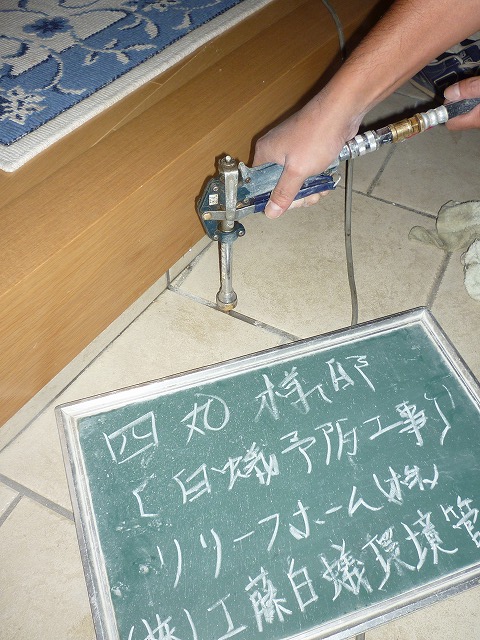 四丸 様邸
(白蟻予防工事)
リリーフホーム(株)
(株)工藤白蟻環境管